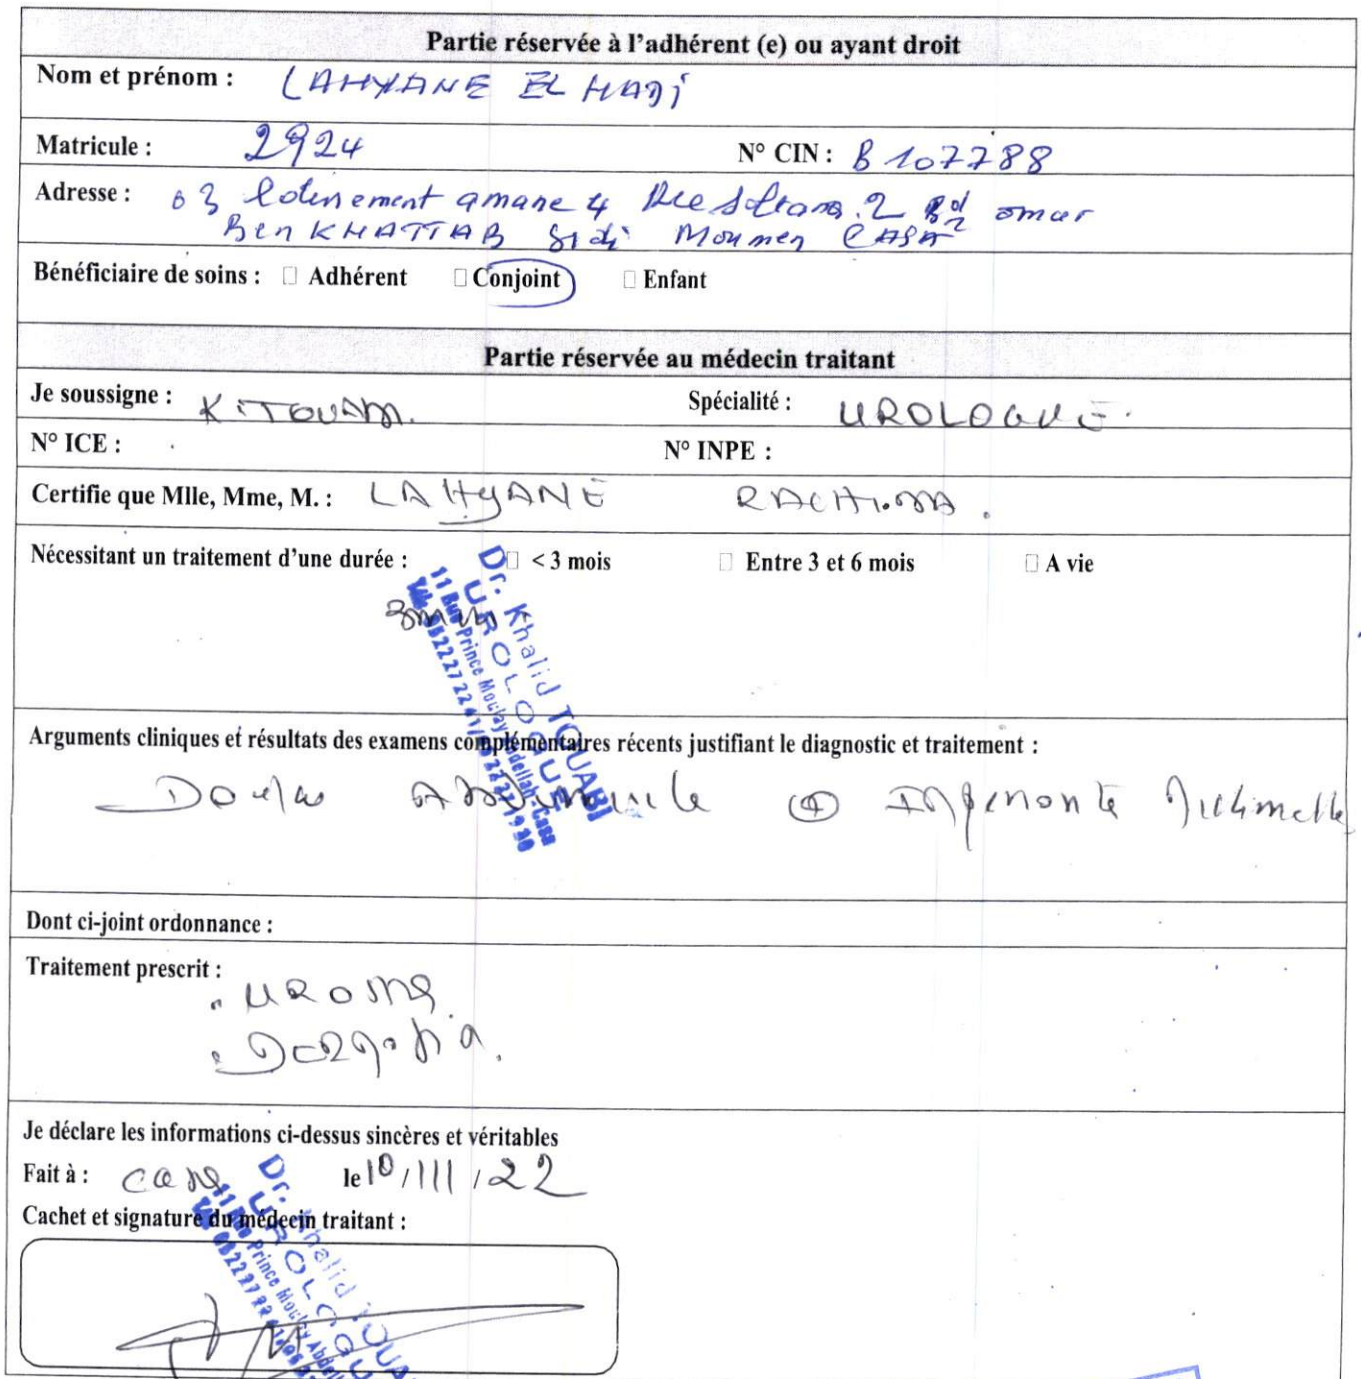 Partie réservée à l'adhérent (e) ou ayant droit
Nom et prénom : LAHYANE EL HADJ
Matricule : 2924 N° CIN : B 107788
Adresse : 03 lotissement amane 4 Sultana 2 Bd omar
Ben KHATTAB Sidi Moumen CASA
Bénéficiaire de soins : □ Adhérent □ Conjoint □ Enfant
Partie réservée au médecin traitant
Je soussigne : K. TOUABI. Spécialité : UROLOGUE.
N° ICE : N° INPE :
Certifie que Mlle, Mme, M. : LAHYANE RACHIDA.
Nécessitant un traitement d'une durée : □ < 3 mois □ Entre 3 et 6 mois □ A vie
Dr. Khalid TOUABI
UROLOGUE
11 Rue Prince Moulay Abdellah-Casa
Arguments cliniques et résultats des examens complémentaires récents justifiant le diagnostic et traitement :
Dont ci-joint ordonnance :
Traitement prescrit :
Je déclare les informations ci-dessus sincères et véritables
Fait à : Casa le 10/111/22
Cachet et signature du médecin traitant :
Dr. Khalid TOUA
UROLOGU
11 Rue Prince Moulay Abdell